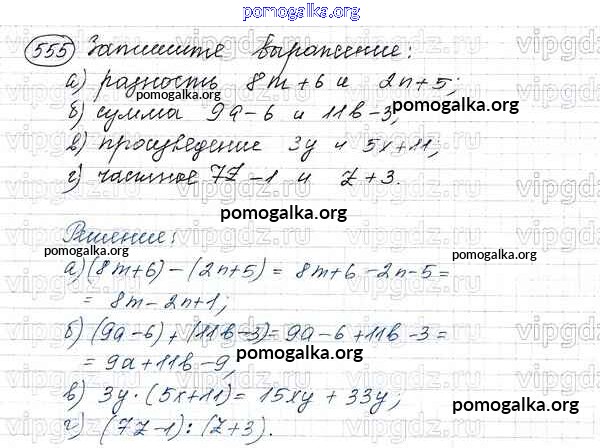 pomogalka.org
555 Запишите выражение:
а) разность 8m+6 и 2n+5;
pomogalka.org
б) сумма 9a-6 и 11b-3;
pomogalka.org
в) произведение 3y и 5x+11,
г) частное 7z-1 и z+3.
pomogalka.org
Решение:
pomogalka.org pomogalka.org
а) (8m+6)-(2n+5)= 8m+6-2n-5=
= 8m-2n+1;
б) (9a-6)+(11b-3)= 9a-6+11b-3=
= 9a+11b-9, pomogalka.org
в) 3y·(5x+11)= 15xy+33y;
г) (7z-1):(z+3).
pomogalka.org pomogalka.org
vipgdz.ru